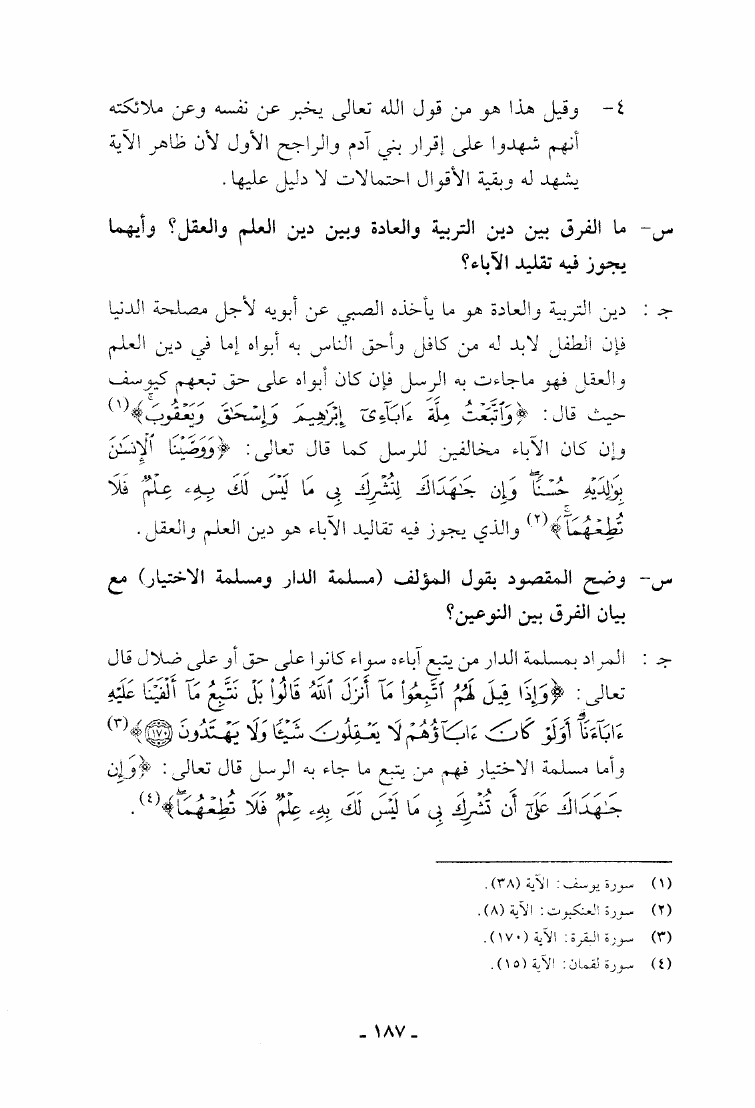 ٤- وقيل هذا هو من قول الله تعالى يخبر عن نفسه وعن ملائكته
أنهم شهدوا على إقرار بني آدم والراجح الأول لأن ظاهر الآية
يشهد له وبقية الأقوال احتمالات لا دليل عليها.
س- ما الفرق بين دين التربية والعادة وبين دين العلم والعقل؟ وأيهما
يجوز فيه تقليد الآباء؟
جـ : دين التربية والعادة هو ما يأخذه الصبي عن أبويه لأجل مصلحة الدنيا
فإن الطفل لابد له من كافل وأحق الناس به أبواه إما في دين العلم
والعقل فهو ماجاءت به الرسل فإن كان أبواه على حق تبعهم كيوسف
حيث قال: ﴿وَٱتَّبَعْتُ مِلَّةَ ءَابَآءِىٓ إِبْرَٰهِيمَ وَإِسْحَٰقَ وَيَعْقُوبَ﴾(١)
وإن كان الآباء مخالفين للرسل كما قال تعالى: ﴿وَوَصَّيْنَا ٱلْإِنسَٰنَ
بِوَٰلِدَيْهِ حُسْنًا ۖ وَإِن جَٰهَدَاكَ لِتُشْرِكَ بِى مَا لَيْسَ لَكَ بِهِۦ عِلْمٌ فَلَا
تُطِعْهُمَآ ۚ﴾(٢) والذي يجوز فيه تقاليد الآباء هو دين العلم والعقل.
س- وضح المقصود بقول المؤلف (مسلمة الدار ومسلمة الاختيار) مع
بيان الفرق بين النوعين؟
جـ : المراد بمسلمة الدار من يتبع آباءه سواء كانوا على حق أو على ضلال قال
تعالى: ﴿وَإِذَا قِيلَ لَهُمُ ٱتَّبِعُوا۟ مَآ أَنزَلَ ٱللَّهُ قَالُوا۟ بَلْ نَتَّبِعُ مَآ أَلْفَيْنَا عَلَيْهِ
ءَابَآءَنَآ ۗ أَوَلَوْ كَانَ ءَابَآؤُهُمْ لَا يَعْقِلُونَ شَيْـًٔا وَلَا يَهْتَدُونَ ۝١٧٠﴾(٣)
وأما مسلمة الاختيار فهم من يتبع ما جاء به الرسل قال تعالى: ﴿وَإِن
جَٰهَدَاكَ عَلَىٰٓ أَن تُشْرِكَ بِى مَا لَيْسَ لَكَ بِهِۦ عِلْمٌ فَلَا تُطِعْهُمَا ۖ﴾(٤).
(١) سورة يوسف: الآية (٣٨).
(٢) سورة العنكبوت: الآية (٨).
(٣) سورة البقرة: الآية (١٧٠).
(٤) سورة لقمان: الآية (١٥).
ـ ١٨٧ ـ